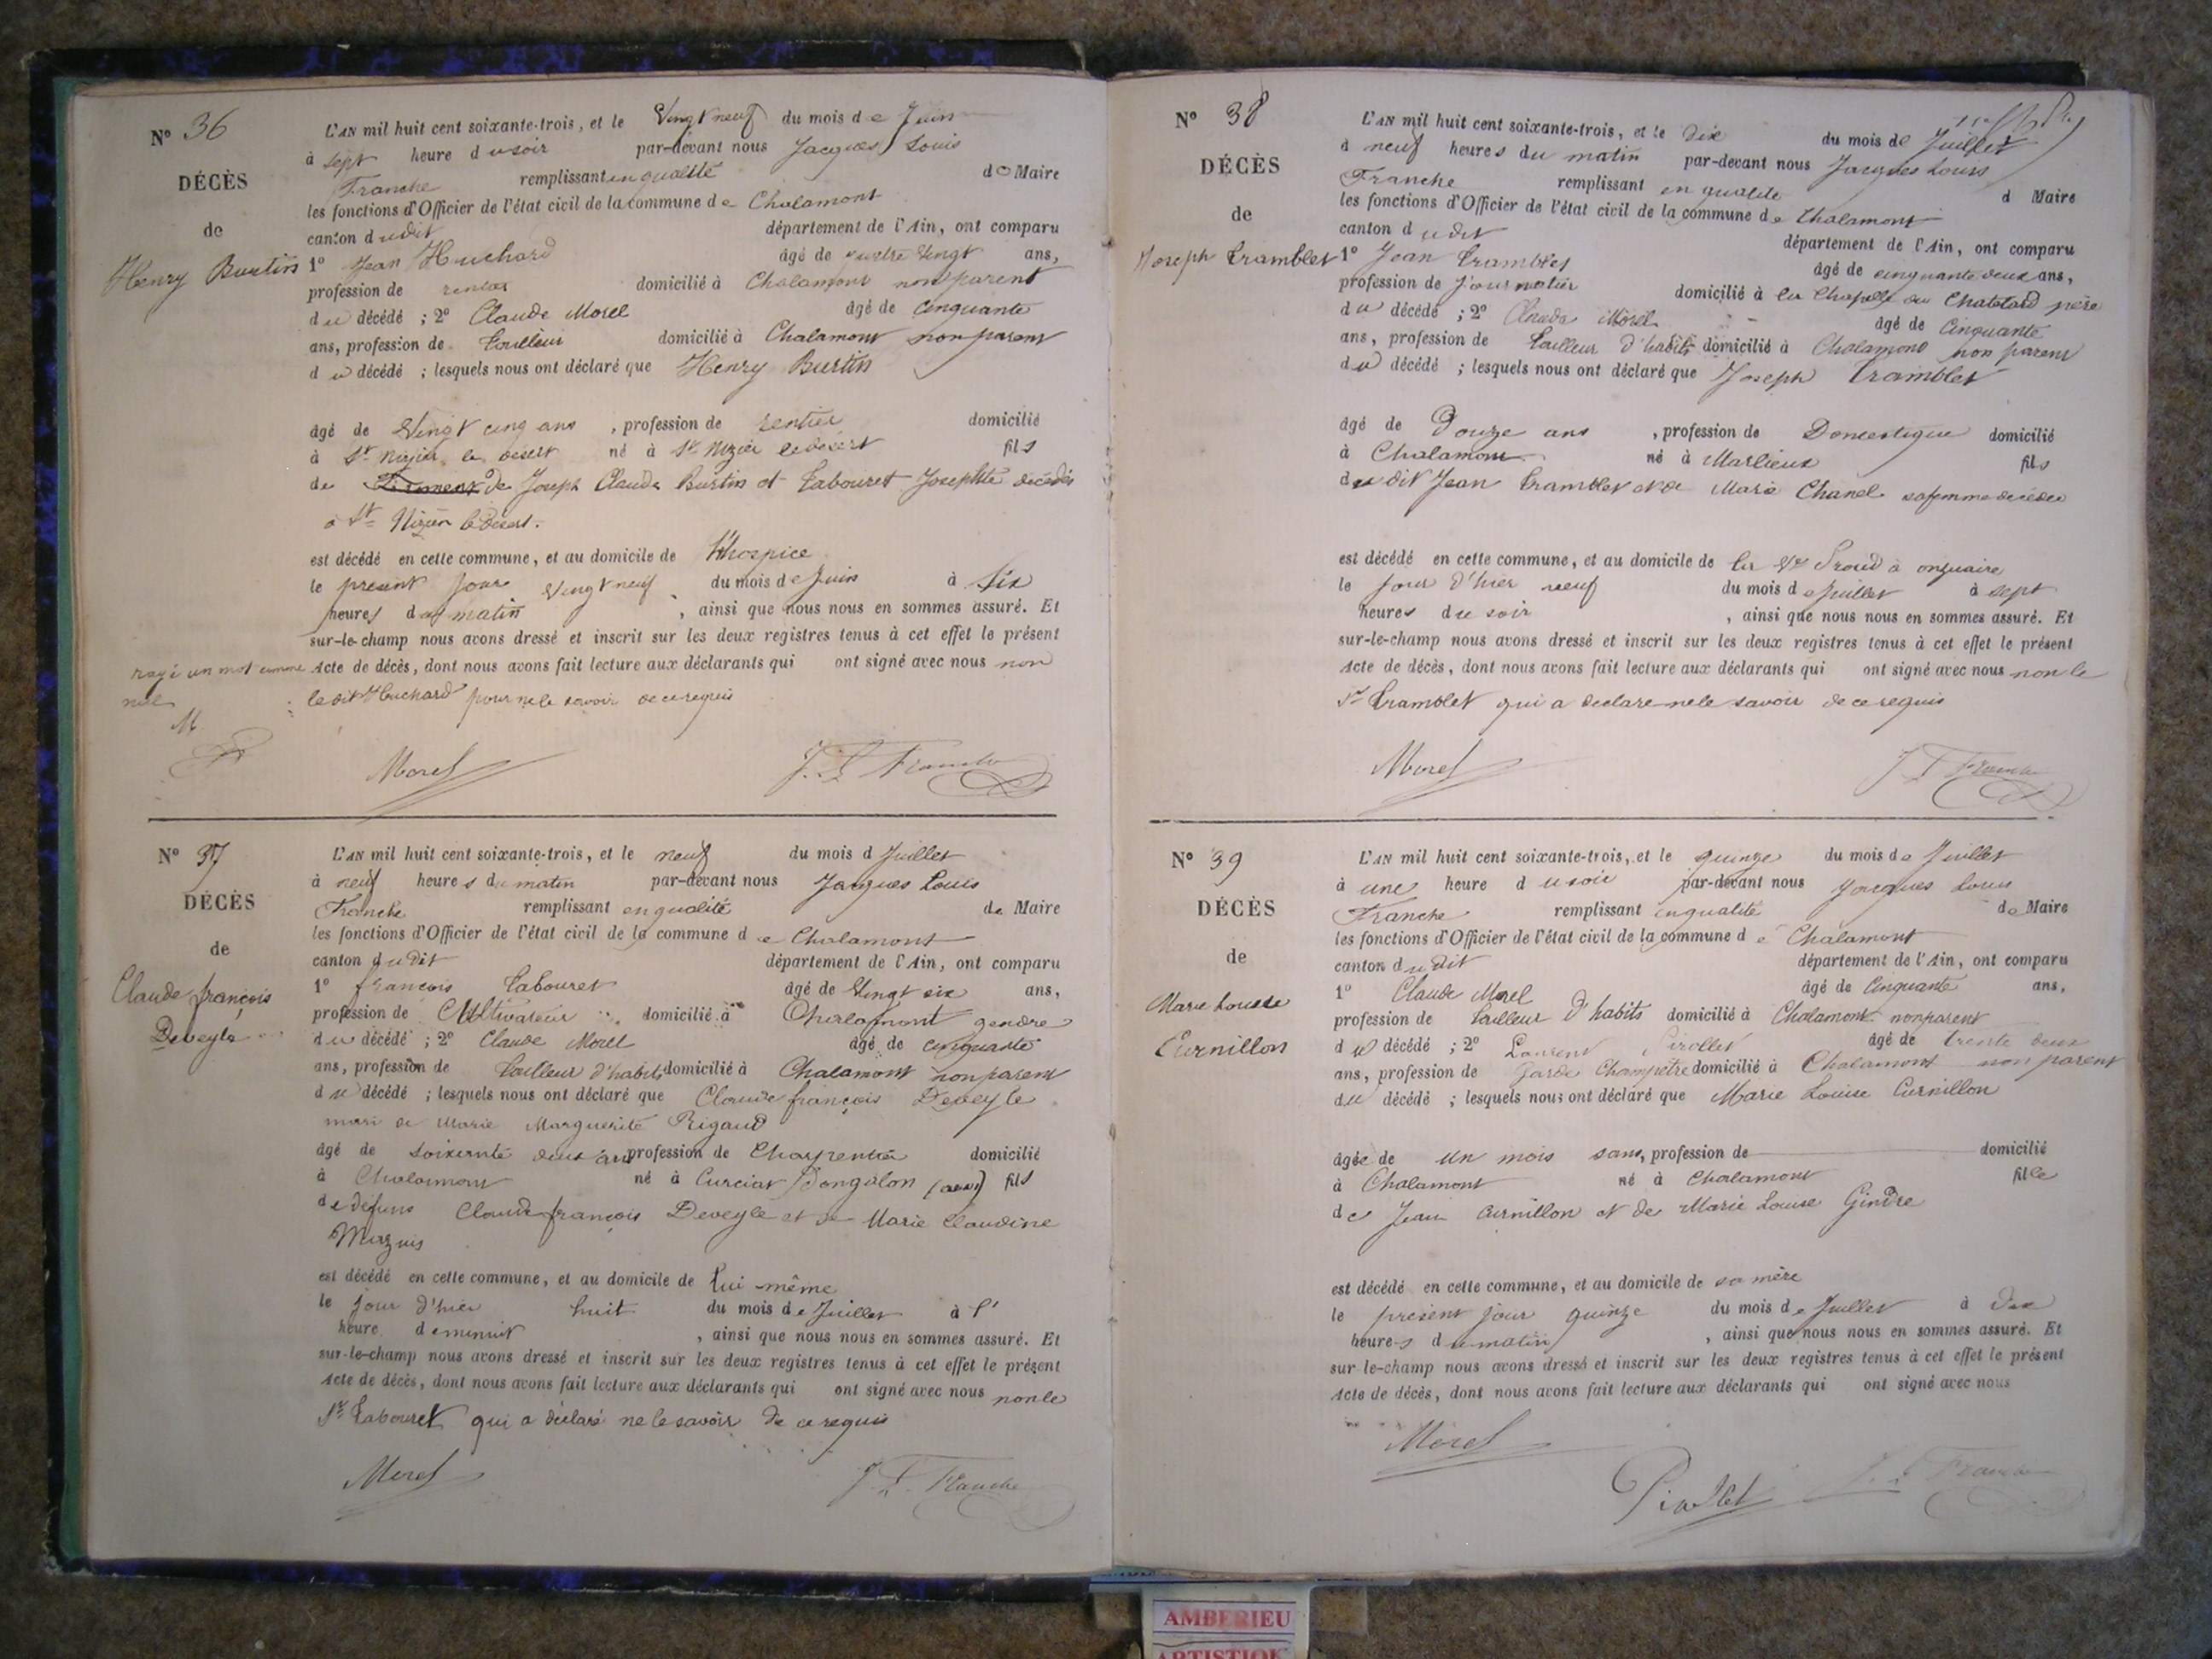 N° 36
DÉCÈS
de
Henry Burtin
L'AN mil huit cent soixante-trois, et le Vingt neuf du mois de Juin
à sept heure du soir par-devant nous Jacques Louis
Franche remplissant en qualité de Maire
les fonctions d'Officier de l'état civil de la commune de Chalamont
canton dudit département de l'Ain, ont comparu
1° Jean Huchard âgé de quatre Vingt ans,
profession de rentier domicilié à Chalamont non parent
du décédé ; 2° Claude Morel âgé de Cinquante
ans, profession de Tailleur domicilié à Chalamont non parent
du décédé ; lesquels nous ont déclaré que Henry Burtin
âgé de Vingt cinq ans , profession de rentier domicilié
à St Nizier le desert né à St Nizier le desert fils
de de Joseph Claude Burtin et Tabouret Josephte décédés
à St Nizier le Désert.
est décédé en cette commune, et au domicile de l'hospice
le présent jour Vingt neuf du mois de Juin à Six
heures du matin , ainsi que nous nous en sommes assuré. Et
sur-le-champ nous avons dressé et inscrit sur les deux registres tenus à cet effet le présent
Acte de décès, dont nous avons fait lecture aux déclarants qui ont signé avec nous non
le dit Huchard pour ne le savoir de ce requis
rayé un mot comme
nul
M
Morel J. L. Franche
N° 37
DÉCÈS
de
Claude françois
Deveyle
L'AN mil huit cent soixante-trois, et le neuf du mois d Juillet
à neuf heures du matin par-devant nous Jacques Louis
Franche remplissant en qualité de Maire
les fonctions d'Officier de l'état civil de la commune de Chalamont
canton dudit département de l'Ain, ont comparu
1° françois Tabouret âgé de Vingt six ans,
profession de Cultivateur domicilié à Chalamont gendre
du décédé ; 2° Claude Morel âgé de cinquante
ans, profession de Tailleur d'habits domicilié à Chalamont non parent
du décédé ; lesquels nous ont déclaré que Claude françois Deveyle
mari de Marie Marguerite Rigaud
âgé de soixante deux ans profession de Charpentier domicilié
à Chalamont né à Curciat Dongalon fils
de defunt Claude françois Deveyle et de Marie Claudine
Mazuis
est décédé en cette commune, et au domicile de Lui même
le jour d'hier huit du mois de Juillet à l'
heure de minuit , ainsi que nous nous en sommes assuré. Et
sur-le-champ nous avons dressé et inscrit sur les deux registres tenus à cet effet le présent
Acte de décès, dont nous avons fait lecture aux déclarants qui ont signé avec nous non le
Sr Tabouret qui a déclaré ne le savoir de ce requis
Morel J. L. Franche
N° 38
DÉCÈS
de
Joseph Tramblet
L'AN mil huit cent soixante-trois, et le dix du mois de Juillet
à neuf heures du matin par-devant nous Jacques Louis
Franche remplissant en qualité d Maire
les fonctions d'Officier de l'état civil de la commune de Chalamont
canton dudit département de l'Ain, ont comparu
1° Jean Tramblet âgé de cinquante deux ans,
profession de Journalier domicilié à La Chapelle du Chatelard père
du décédé ; 2° Claude Morel âgé de Cinquante
ans, profession de Tailleur d'habits domicilié à Chalamont non parent
du décédé ; lesquels nous ont déclaré que Joseph Tramblet
âgé de Douze ans , profession de Domestique domicilié
à Chalamont né à Marlieux fils
du dit Jean Tramblet et de Marie Chanel sa femme décédée
est décédé en cette commune, et au domicile de la Ve Proud à onzuaire
le jour d'hier neuf du mois de Juillet à sept
heures du soir , ainsi que nous nous en sommes assuré. Et
sur-le-champ nous avons dressé et inscrit sur les deux registres tenus à cet effet le présent
Acte de décès, dont nous avons fait lecture aux déclarants qui ont signé avec nous non le
Sr Tramblet qui a déclaré ne le savoir de ce requis
Morel J L Franche
N° 39
DÉCÈS
de
Marie Louise
Curnillon
L'AN mil huit cent soixante-trois, et le quinze du mois de Juillet
à une heure du soir par-devant nous Jacques Louis
Franche remplissant en qualité de Maire
les fonctions d'Officier de l'état civil de la commune de Chalamont
canton dudit département de l'Ain, ont comparu
1° Claude Morel âgé de Cinquante ans,
profession de Tailleur d'habits domicilié à Chalamont non parent
du décédé ; 2° Laurent âgé de trente deux
ans, profession de Garde Champêtre domicilié à Chalamont non parent
du décédé ; lesquels nous ont déclaré que Marie Louise Curnillon
âgée de un mois sans, profession de domicilié
à Chalamont né à Chalamont fille
de Jean Curnillon et de Marie Louise Gindre
est décédé en cette commune, et au domicile de sa mère
le présent jour quinze du mois de Juillet à dix
heures du matin , ainsi que nous nous en sommes assuré. Et
sur le-champ nous avons dressé et inscrit sur les deux registres tenus à cet effet le présent
Acte de décès, dont nous avons fait lecture aux déclarants qui ont signé avec nous
Morel
J. L. Franche
AMBERIEU